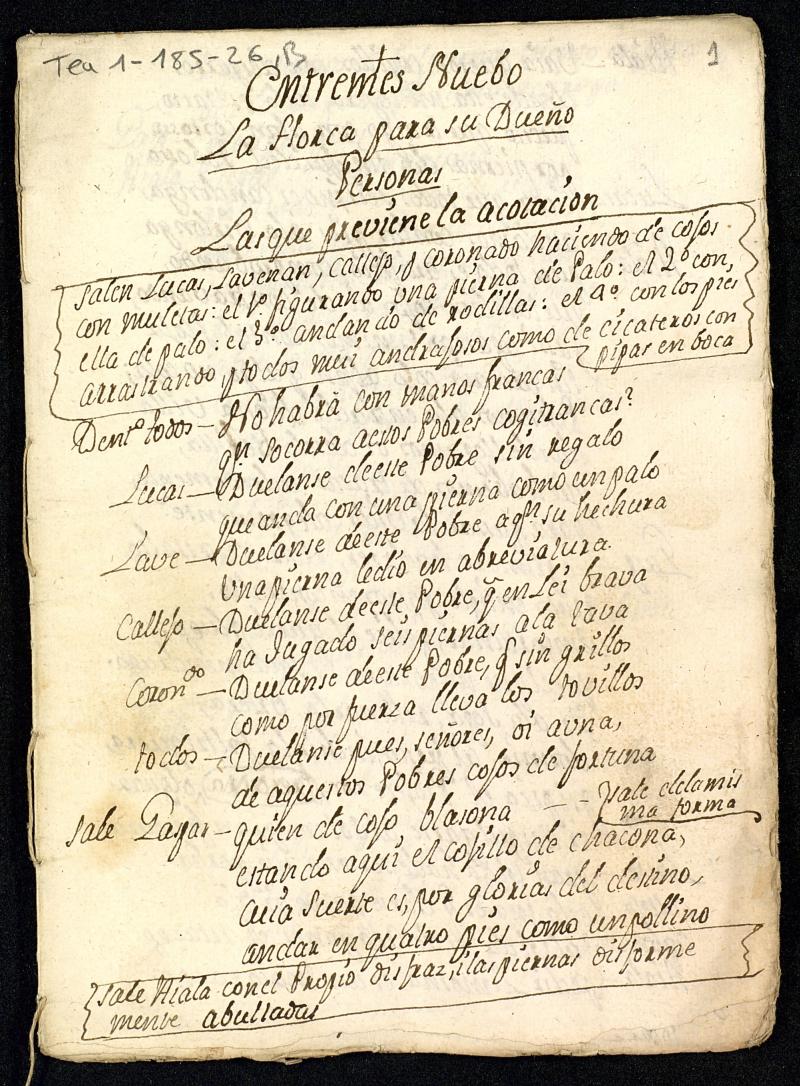 Tea 1-185-26, B
1
Entremes Nuebo
La Horca para su Dueño
Personas
Las que previene la acotación
Salen Lucas, Lavenan, Callejo, y Coronado haciendo de cojos
con muletas: el 1º figurando una pierna de Palo: el 2º con
ella de palo: el 3º andando de rodillas: el 4º con los pies
arrastrando, y todos mui andrajosos como de cicateros con
pipas en boca
Dentº todos - No habrà con manos francas
qn socorra a estos Pobres cogitrancas?
Lucas - Duelanse de este Pobre sin regalo
que anda con una pierna como un palo
Lave - Duelanse de este Pobre a qn su hechura
una pierna le dio en abreviatura.
Callejo - Duelanse de este Pobre, q̃ en Lei brava
ha Jugado seis piernas a la tava
Coron.do - Duelanse de este Pobre, q̃ sin grillos
como por fuerza lleva los tovillos
todos - Duelanse pues, señores, oi a una,
de aquestos Pobres cojos de fortuna
Sale Gaspar - quien de cojo blasona - - sale de la mis
ma forma
estando aqui el cojillo de chacona,
cuia suerte es, por glorias del destino,
andar en quatro pies como un pollino
Sale Hiala con el Propio disfraz, i las piernas disforme
mente abultadas